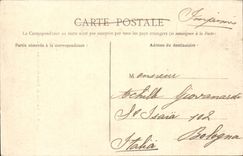 CARTE POSTALE
Imprimés
La Correspondance au recto n'est pas acceptée par tous les pays étrangers (se renseigner à la Poste)
Partie réservée à la correspondance
Adresse du destinataire
Monsieur
Achille Giovanardi
St Isaia 102
Bologna
Italia